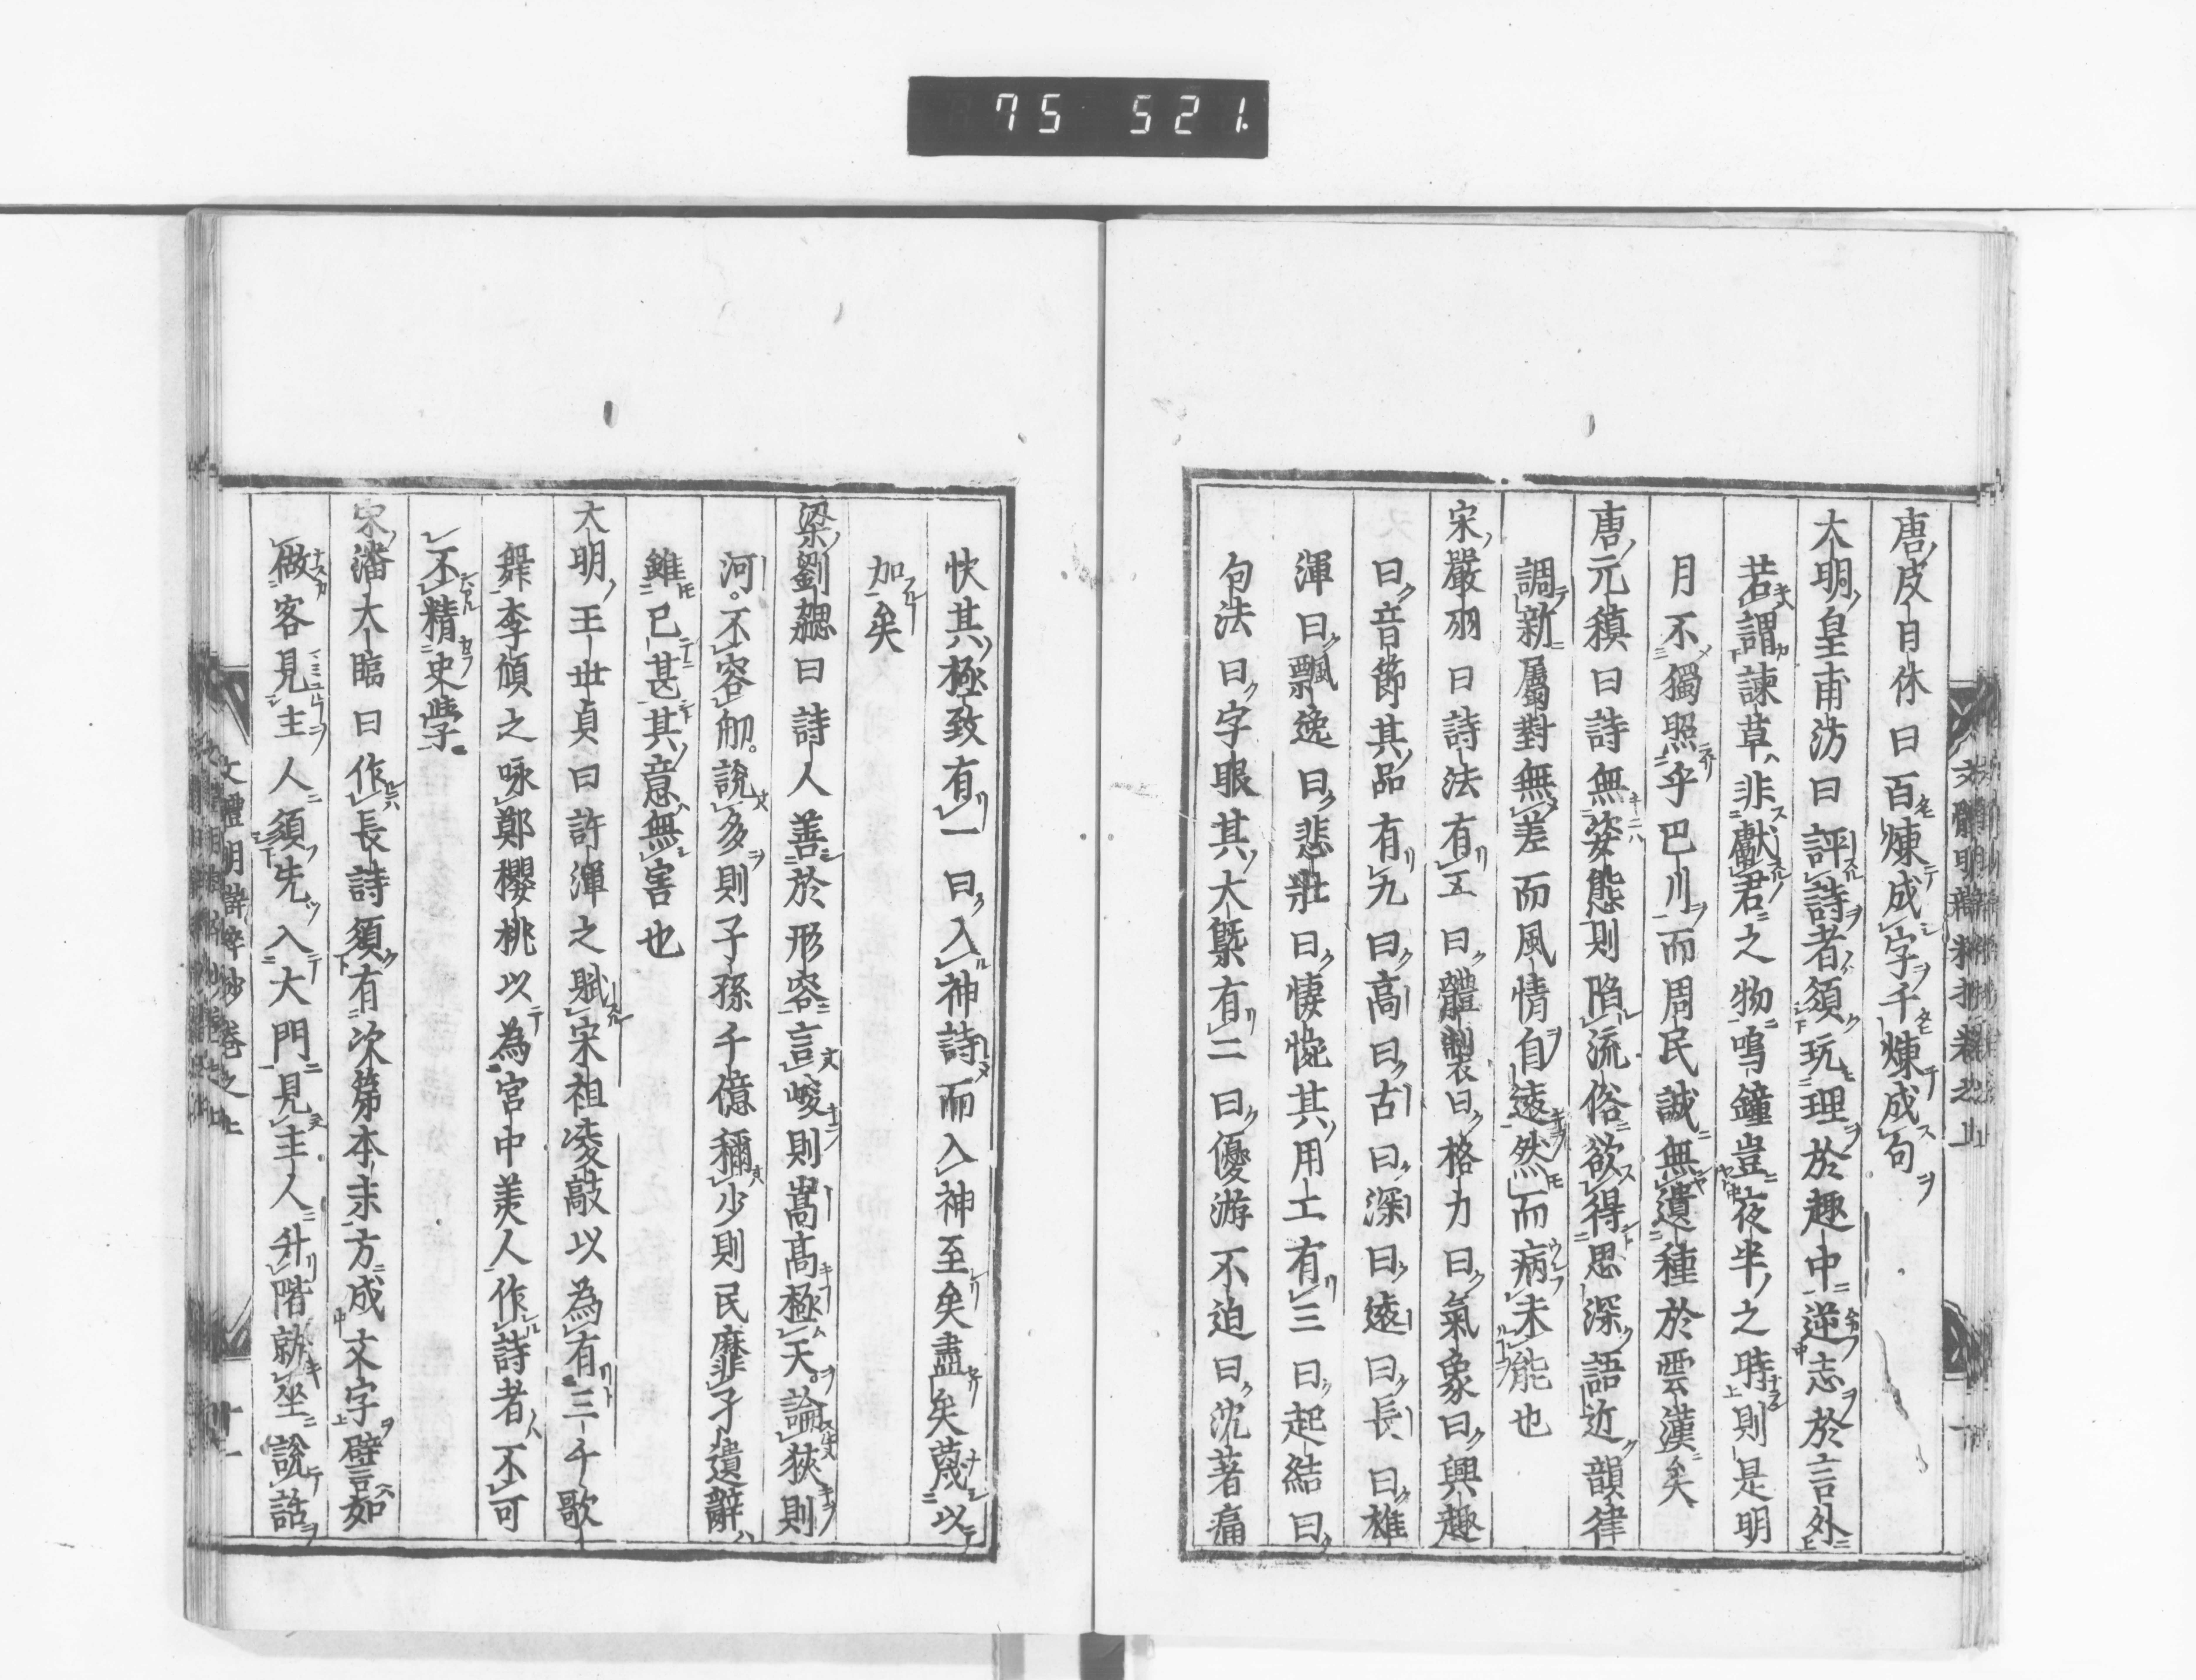 75 521.
唐皮日休曰百煉成字千煉成句
大明皇甫汸曰評詩者須玩理於趣中逆志於言外
若謂諫草非獻君之物鳴鐘豈夜半之時則是明
月不獨照乎巴川而周民誠無遺種於雲漢矣
唐元稹曰詩無姿態則陷流俗欲得思深語近韻律
調新屬對無差而風情自遠然而病未能也
宋嚴羽曰詩法有五曰體製曰格力曰氣象曰興趣
曰音節其品有九曰高曰古曰深曰遠曰長曰雄
渾曰飄逸曰悲壯曰悽惋其用工有三曰起結曰
句法曰字眼其大槩有二曰優游不迫曰沈著痛
快其極致有一曰入神詩而入神至矣盡矣蔑以
加矣
梁劉勰曰詩人善於形容言峻則嵩高極天論狹則
河不容舠說多則子孫千億稱少則民靡孑遺辭
雖已甚其意無害也
大明王世貞曰許渾之賦宋祖凌歊以為有三千歌
舞李頎之咏鄭櫻桃以為宮中美人作詩者不可
不精史學
宋潘大臨曰作長詩須有次第本末方成文字譬如
做客見主人須先入大門見主人升階就坐說話
文體明辯粹抄卷之上
十一